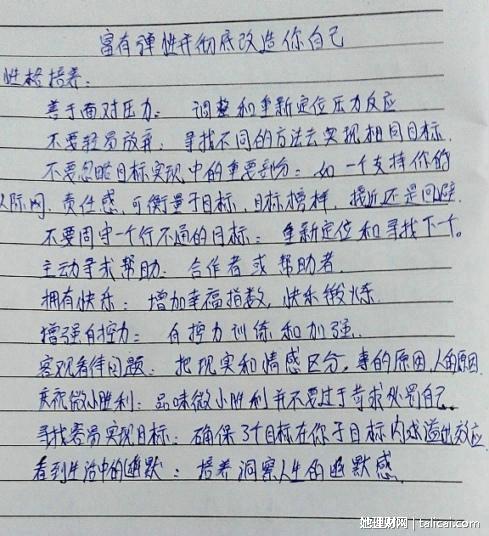 富有弹性并彻底改造你自己
性格培养:
善于面对压力: 调整和重新定位压力反应
不要轻易放弃: 寻找不同的方法去实现相同目标.
不要忽略目标实现中的重要部分: 如一个支持你的
人际网, 责任感, 可衡量子目标, 目标榜样, 接近还是回避.
不要固守一个行不通的目标: 重新定位和寻找下一个。
主动寻求帮助: 合作者或帮助者.
拥有快乐: 增加幸福指数, 快乐锻炼.
增强自控力: 自控力训练和加强.
客观看待问题: 把现实和情感区分, 事的原因, 人的原因.
庆祝微小胜利: 品味微小胜利并不要过于苛求处罚自己.
寻找容易实现目标: 确保3个目标在你子目标内或溢出效应
看到生活中的幽默: 培养洞察人生的幽默感.
她理财网 | talicai.com